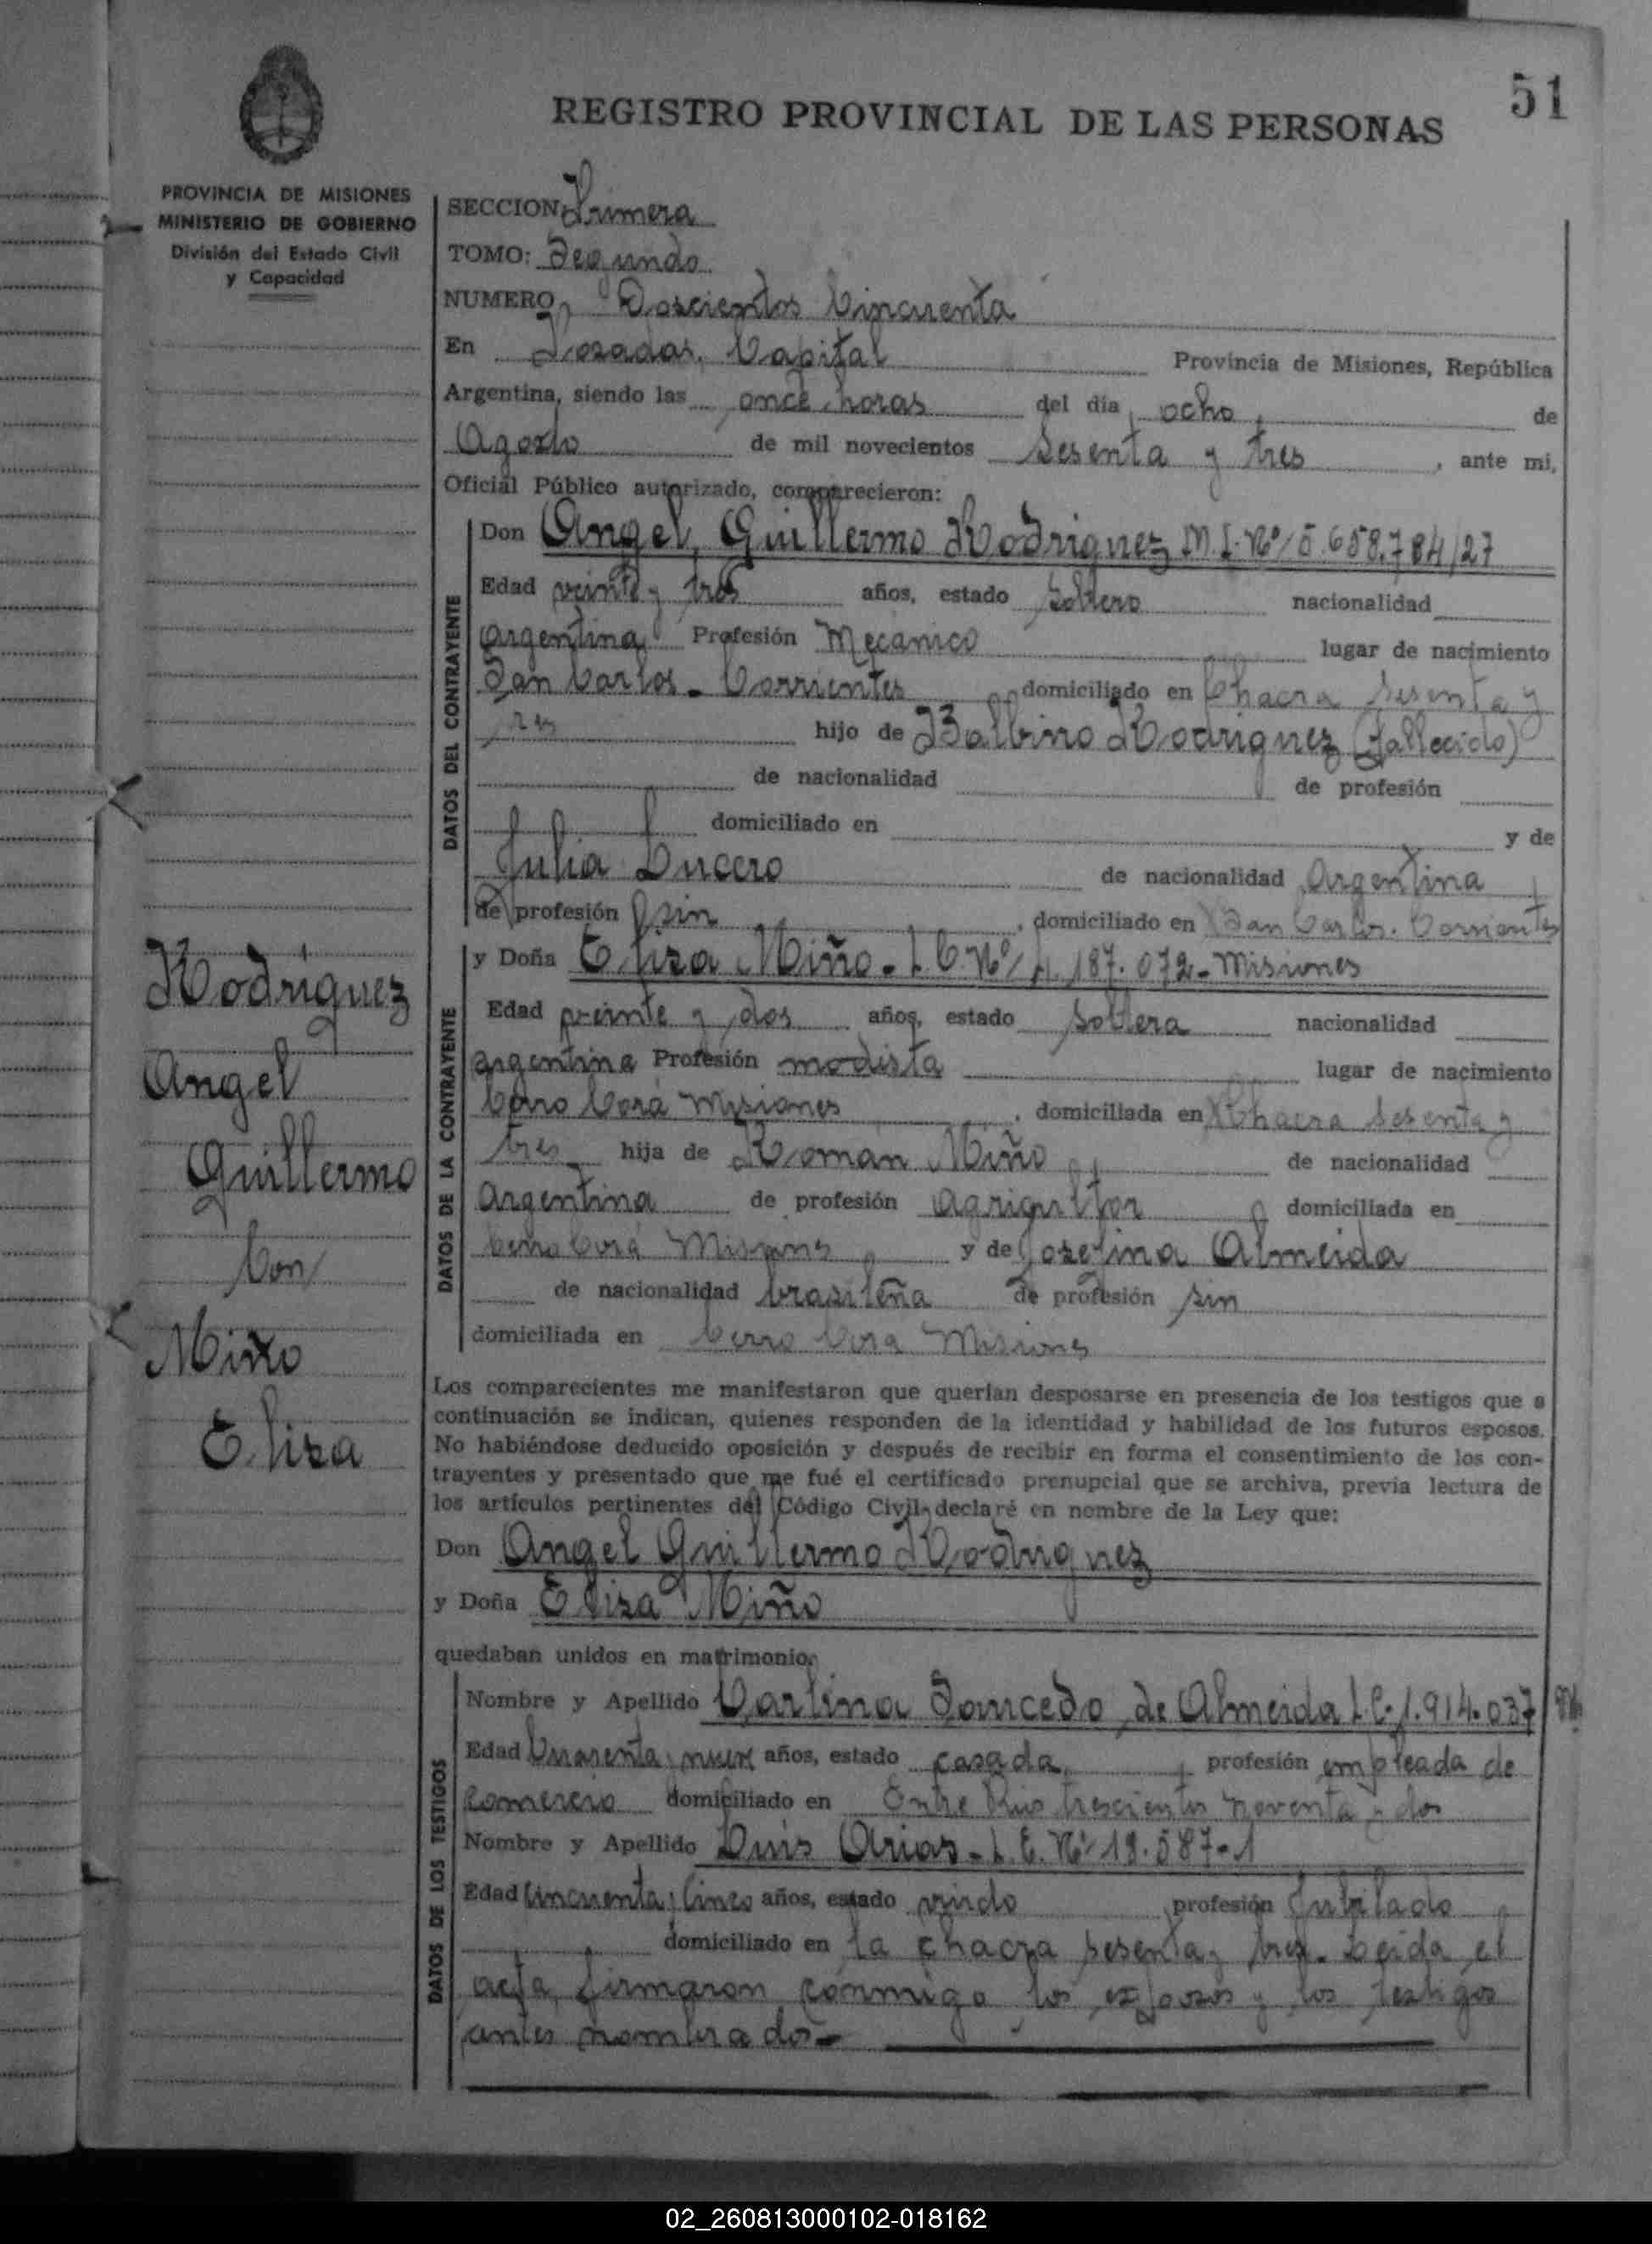 51
REGISTRO PROVINCIAL DE LAS PERSONAS
PROVINCIA DE MISIONES
MINISTERIO DE GOBIERNO
División del Estado Civil
y Capacidad
SECCION: Primera
TOMO: Segundo
NUMERO Doscientos Cincuenta
En Posadas, Capital Provincia de Misiones, República
Argentina, siendo las once horas del día ocho de
Agosto de mil novecientos sesenta y tres, ante mi,
Oficial Público autorizado, comparecieron:
DATOS DEL CONTRAYENTE
Don Angel Guillermo Rodriguez M.I. Nº 5.658.784/27
Edad veinte y tres años, estado soltero nacionalidad
argentina Profesión Mecanico lugar de nacimiento
San Carlos - Corrientes domiciliado en Chacra sesenta y
tres hijo de Balbino Rodriguez (fallecido)
de nacionalidad de profesión
domiciliado en y de
Julia Lucero de nacionalidad Argentina
de profesión sin, domiciliado en San Carlos. Corrientes
DATOS DE LA CONTRAYENTE
y Doña Elisa Miño - L.C. Nº 4.187.072 - Misiones
Edad veinte y dos años, estado soltera nacionalidad
argentina Profesión modista lugar de nacimiento
Cerro Corá Misiones, domiciliada en Chacra sesenta y
tres hija de Román Miño de nacionalidad
Argentina de profesión agricultor domiciliada en
Cerro Corá Misiones y de Josefina Almeida
de nacionalidad brasileña de profesión sin
domiciliada en Cerro Corá Misiones
Los comparecientes me manifestaron que querían desposarse en presencia de los testigos que a
continuación se indican, quienes responden de la identidad y habilidad de los futuros esposos.
No habiéndose deducido oposición y después de recibir en forma el consentimiento de los con-
trayentes y presentado que me fué el certificado prenupcial que se archiva, previa lectura de
los artículos pertinentes del Código Civil, declaré en nombre de la Ley que:
Don Angel Guillermo Rodriguez
y Doña Elisa Miño
quedaban unidos en matrimonio.
DATOS DE LOS TESTIGOS
Nombre y Apellido Carlina Saucedo de Almeida L.C. 1.914.037
Edad Cuarenta y nueve años, estado casada, profesión empleada de
comercio domiciliado en Entre Rios trescientos noventa y dos
Nombre y Apellido Luis Arias - L.E. Nº 19.587-1
Edad Cincuenta y Cinco años, estado viudo profesión Jubilado
domiciliado en la chacra sesenta y tres. Leida el
acta, firmaron conmigo los esposos y los testigos
antes nombrados -
Rodriguez
Angel
Guillermo
Con
Miño
Elisa
02_260813000102-018162